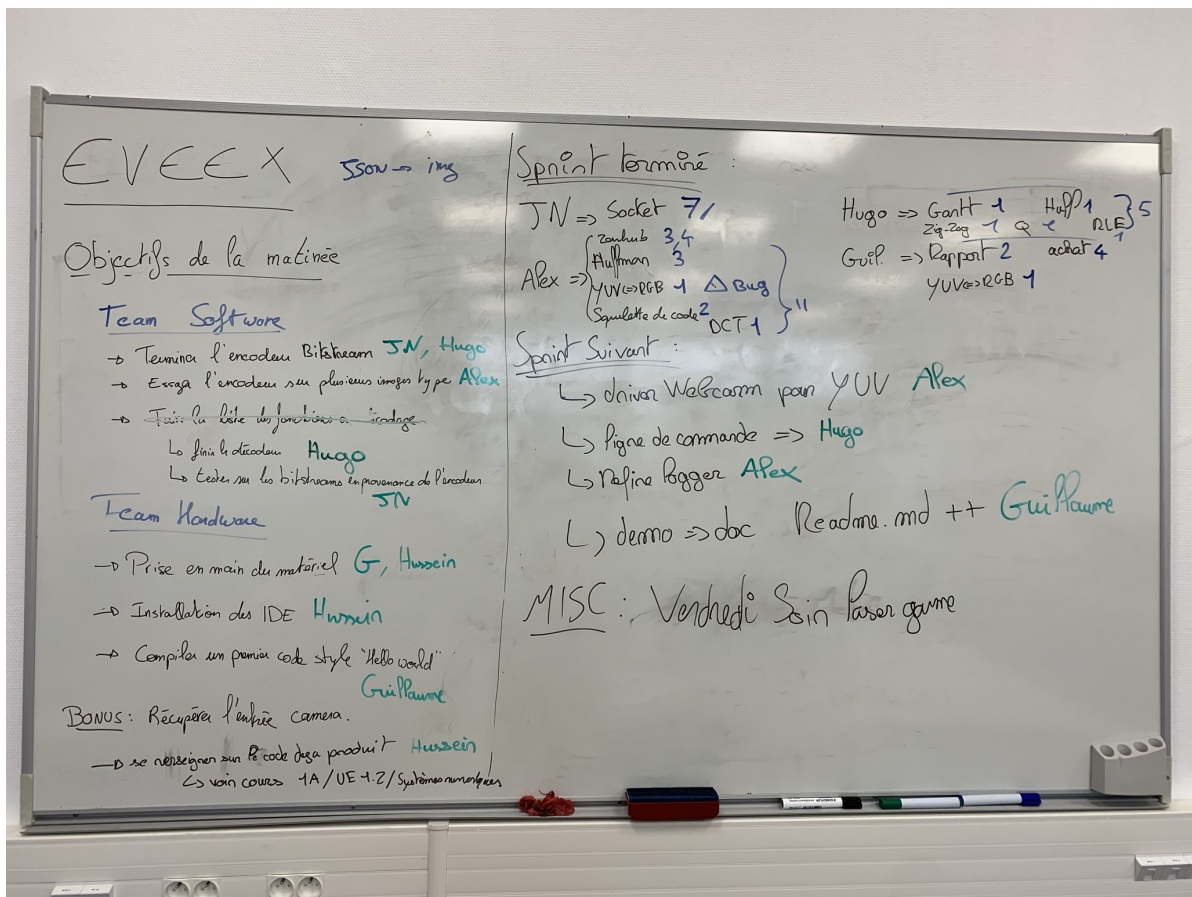 EVEEX
JSON → img
Objectifs de la matinée
Team Software
→ Terminer l'encodeur Bitstream JN, Hugo
→ Essayer l'encodeur sur plusieurs images type Alex
→ Faire la liste des fonctions décodage
↳ finir le décodeur Hugo
↳ tester sur les bitstreams en provenance de l'encodeur
JN
Team Hardware
→ Prise en main du matériel G, Hussein
→ Installation des IDE Hussein
→ Compiler un premier code style "Hello world"
Guillaume
BONUS : Récupérer l'entrée camera.
→ se renseigner sur le code deja produit Hussein
↳ voir cours 1A/UE 1.2/Systèmes numériques
Sprint terminé :
JN => Socket 7/
Alex =>
3,4
Huffman 3
YUV<=>RGB 1 △ Bug
Squelette de code 2 DCT 1
11
Hugo => Gantt 1 Huff 1
Zig-Zag 1 Q 1 RLE 1
5
Guil. => Rapport 2 achat 4
YUV<=>RGB 1
Sprint Suivant :
↳ driver Webcam pour YUV Alex
↳ ligne de commande => Hugo
↳ Refine logger Alex
↳ demo => doc Readme.md ++ Guillaume
MISC : Vendredi Soir laser game